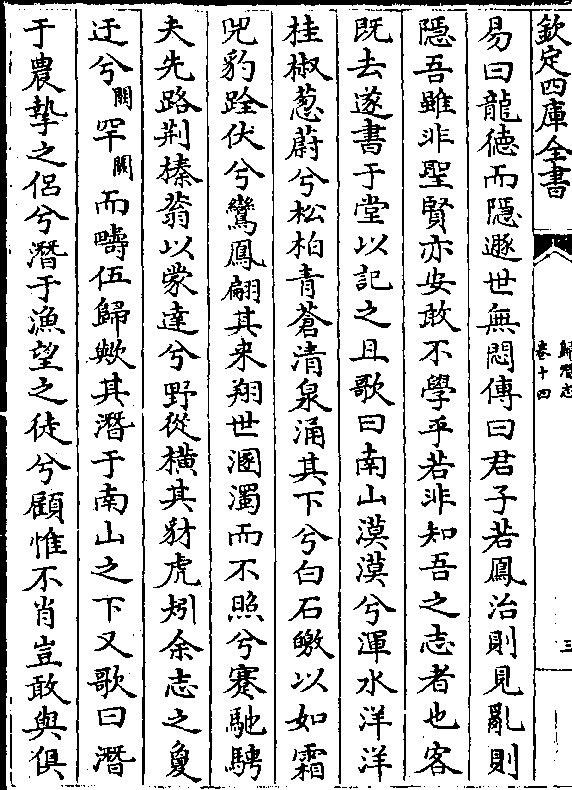 欽定四庫全書
歸潛志
卷十四
三
易曰龍德而隱遯世無悶傳曰君子若鳳治則見亂則
隱吾雖非聖賢亦安敢不學乎若非知吾之志者也客
既去遂書于堂以記之且歌曰南山漠漠兮渾水洋洋
桂椒蔥蔚兮松柏青蒼清泉涌其下兮白石皦以如霜
兕豹跧伏兮鸞鳳翩其来翔世溷濁而不照兮蹇馳騁
夫先路荆榛蓊以蒙達兮野從橫其豺虎矧余志之敻
迂兮闕罕闕而疇伍歸歟其潛于南山之下又歌曰潛
于農摯之侣兮潛于漁望之徒兮顧惟不肖豈敢與俱